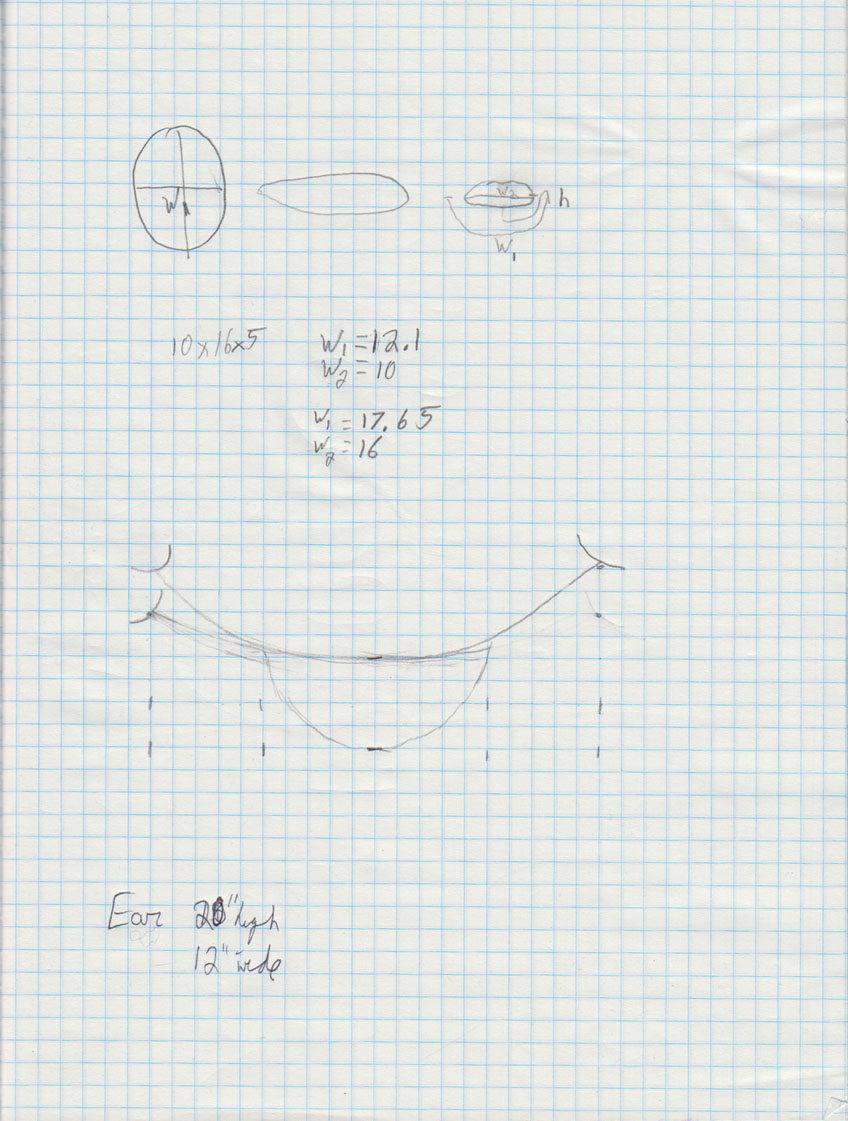 W1
W2
h
W1
10x16x5
W1 = 12.1
W2 = 10
W1 = 17.65
W2 = 16
Ear 20" high
12" wide